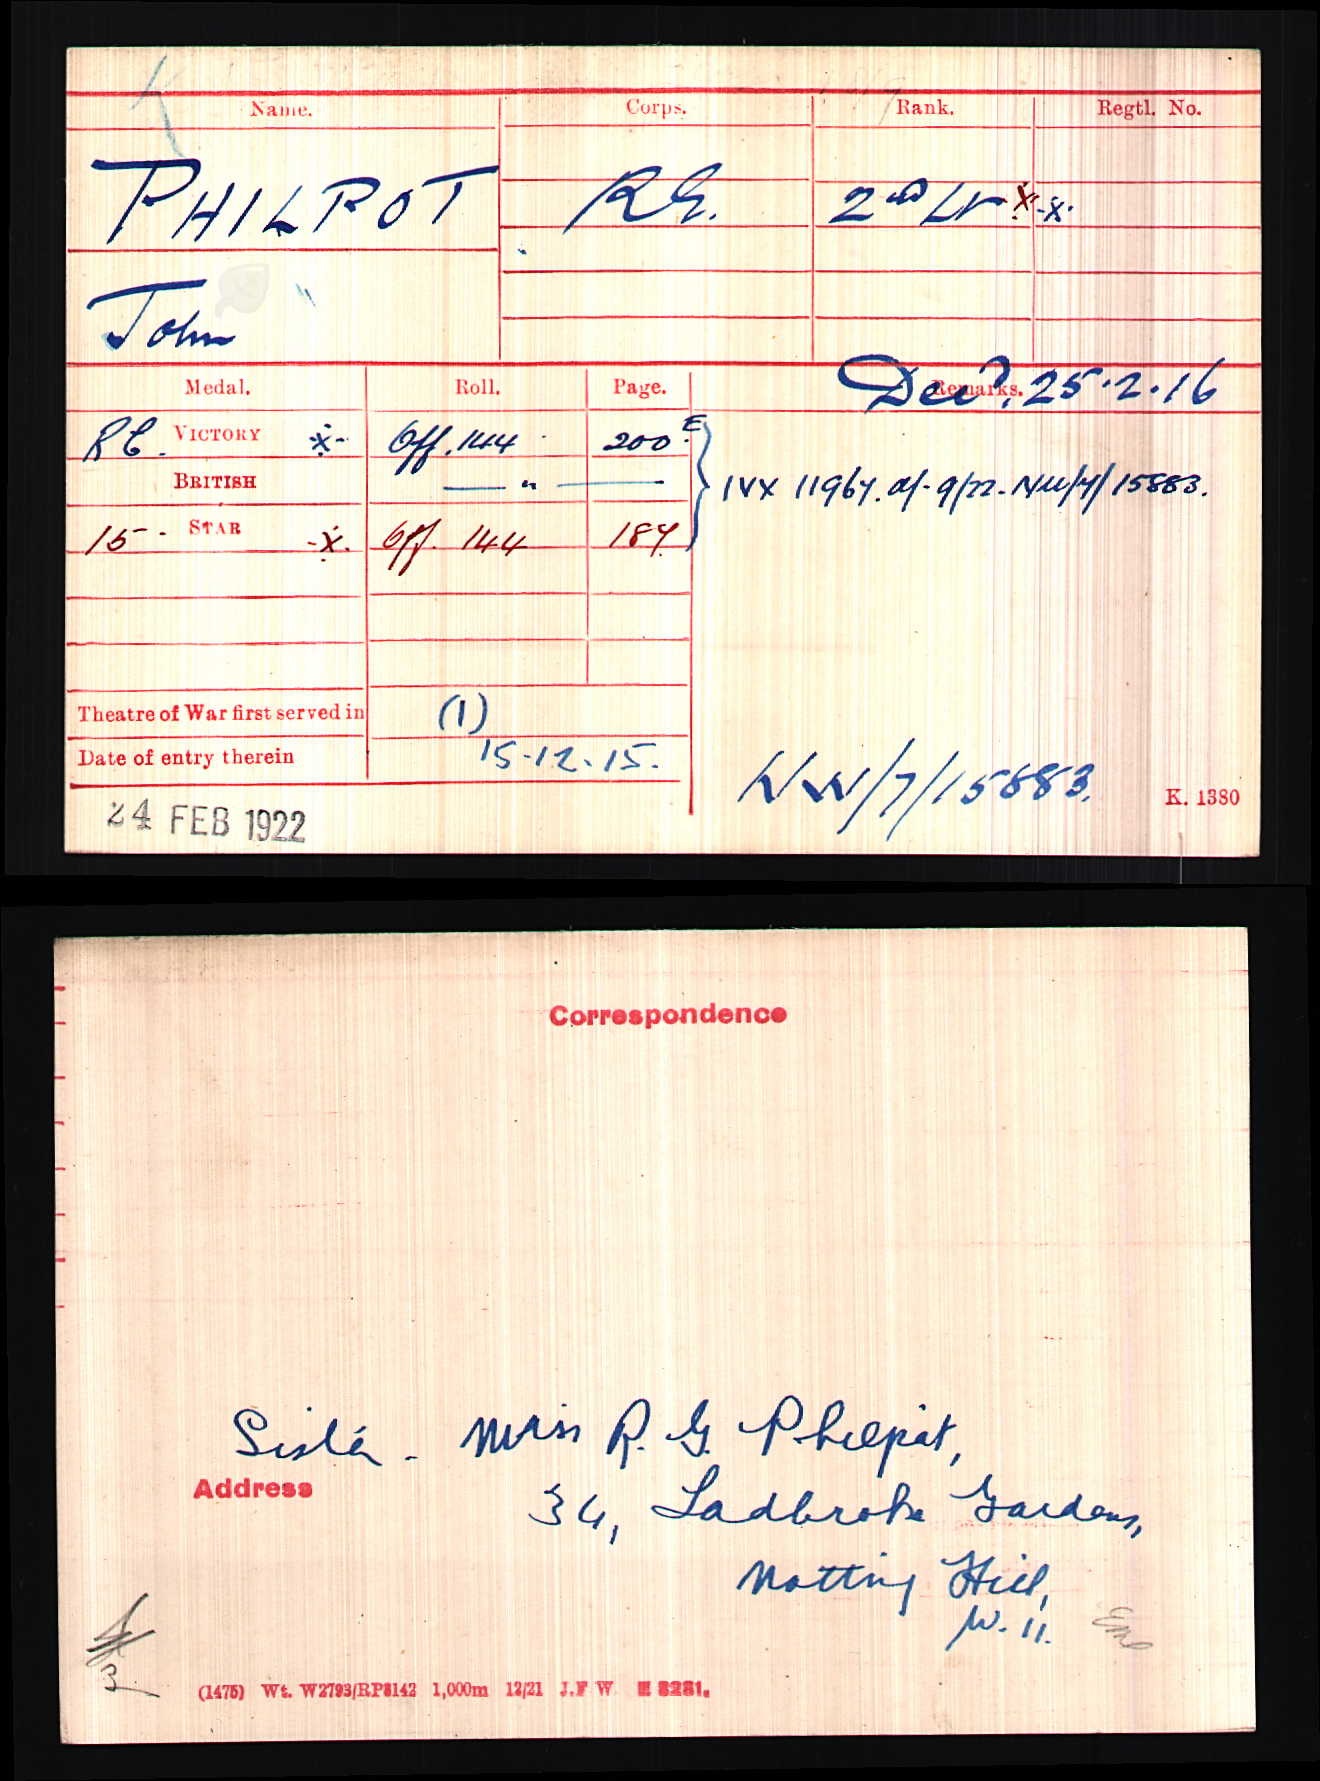 Name. Corps. Rank. Regtl. No.
PHILPOT R.E. 2nd Lt X X
John
Medal. Roll. Page. Remarks. Decd. 25.2.16
VICTORY X Off. 144 200 E
BRITISH — " —
IVX 11967. d/- 9/22. NW/7/15883.
15 STAR X Off. 144 187
Theatre of War first served in (1)
Date of entry therein 15-12-15.
24 FEB 1922
NW/7/15883.
K. 1380
Correspondence
Sister - Miss R. G. Philpot,
Address
34, Ladbroke Gardens,
Notting Hill,
W. 11.
(1475) Wt. W2793/RP8142 1,000m 12/21 J.F W E 8281.